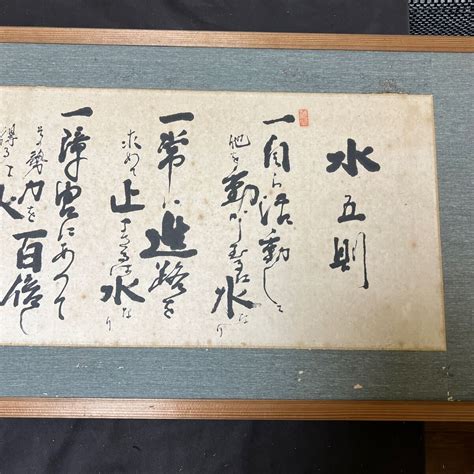 水五則
一自ら活動して
他を動かしむるは水なり
一常に進路を
求めて止まざるは水なり
一障害にあつて
其勢力を百倍し
得る